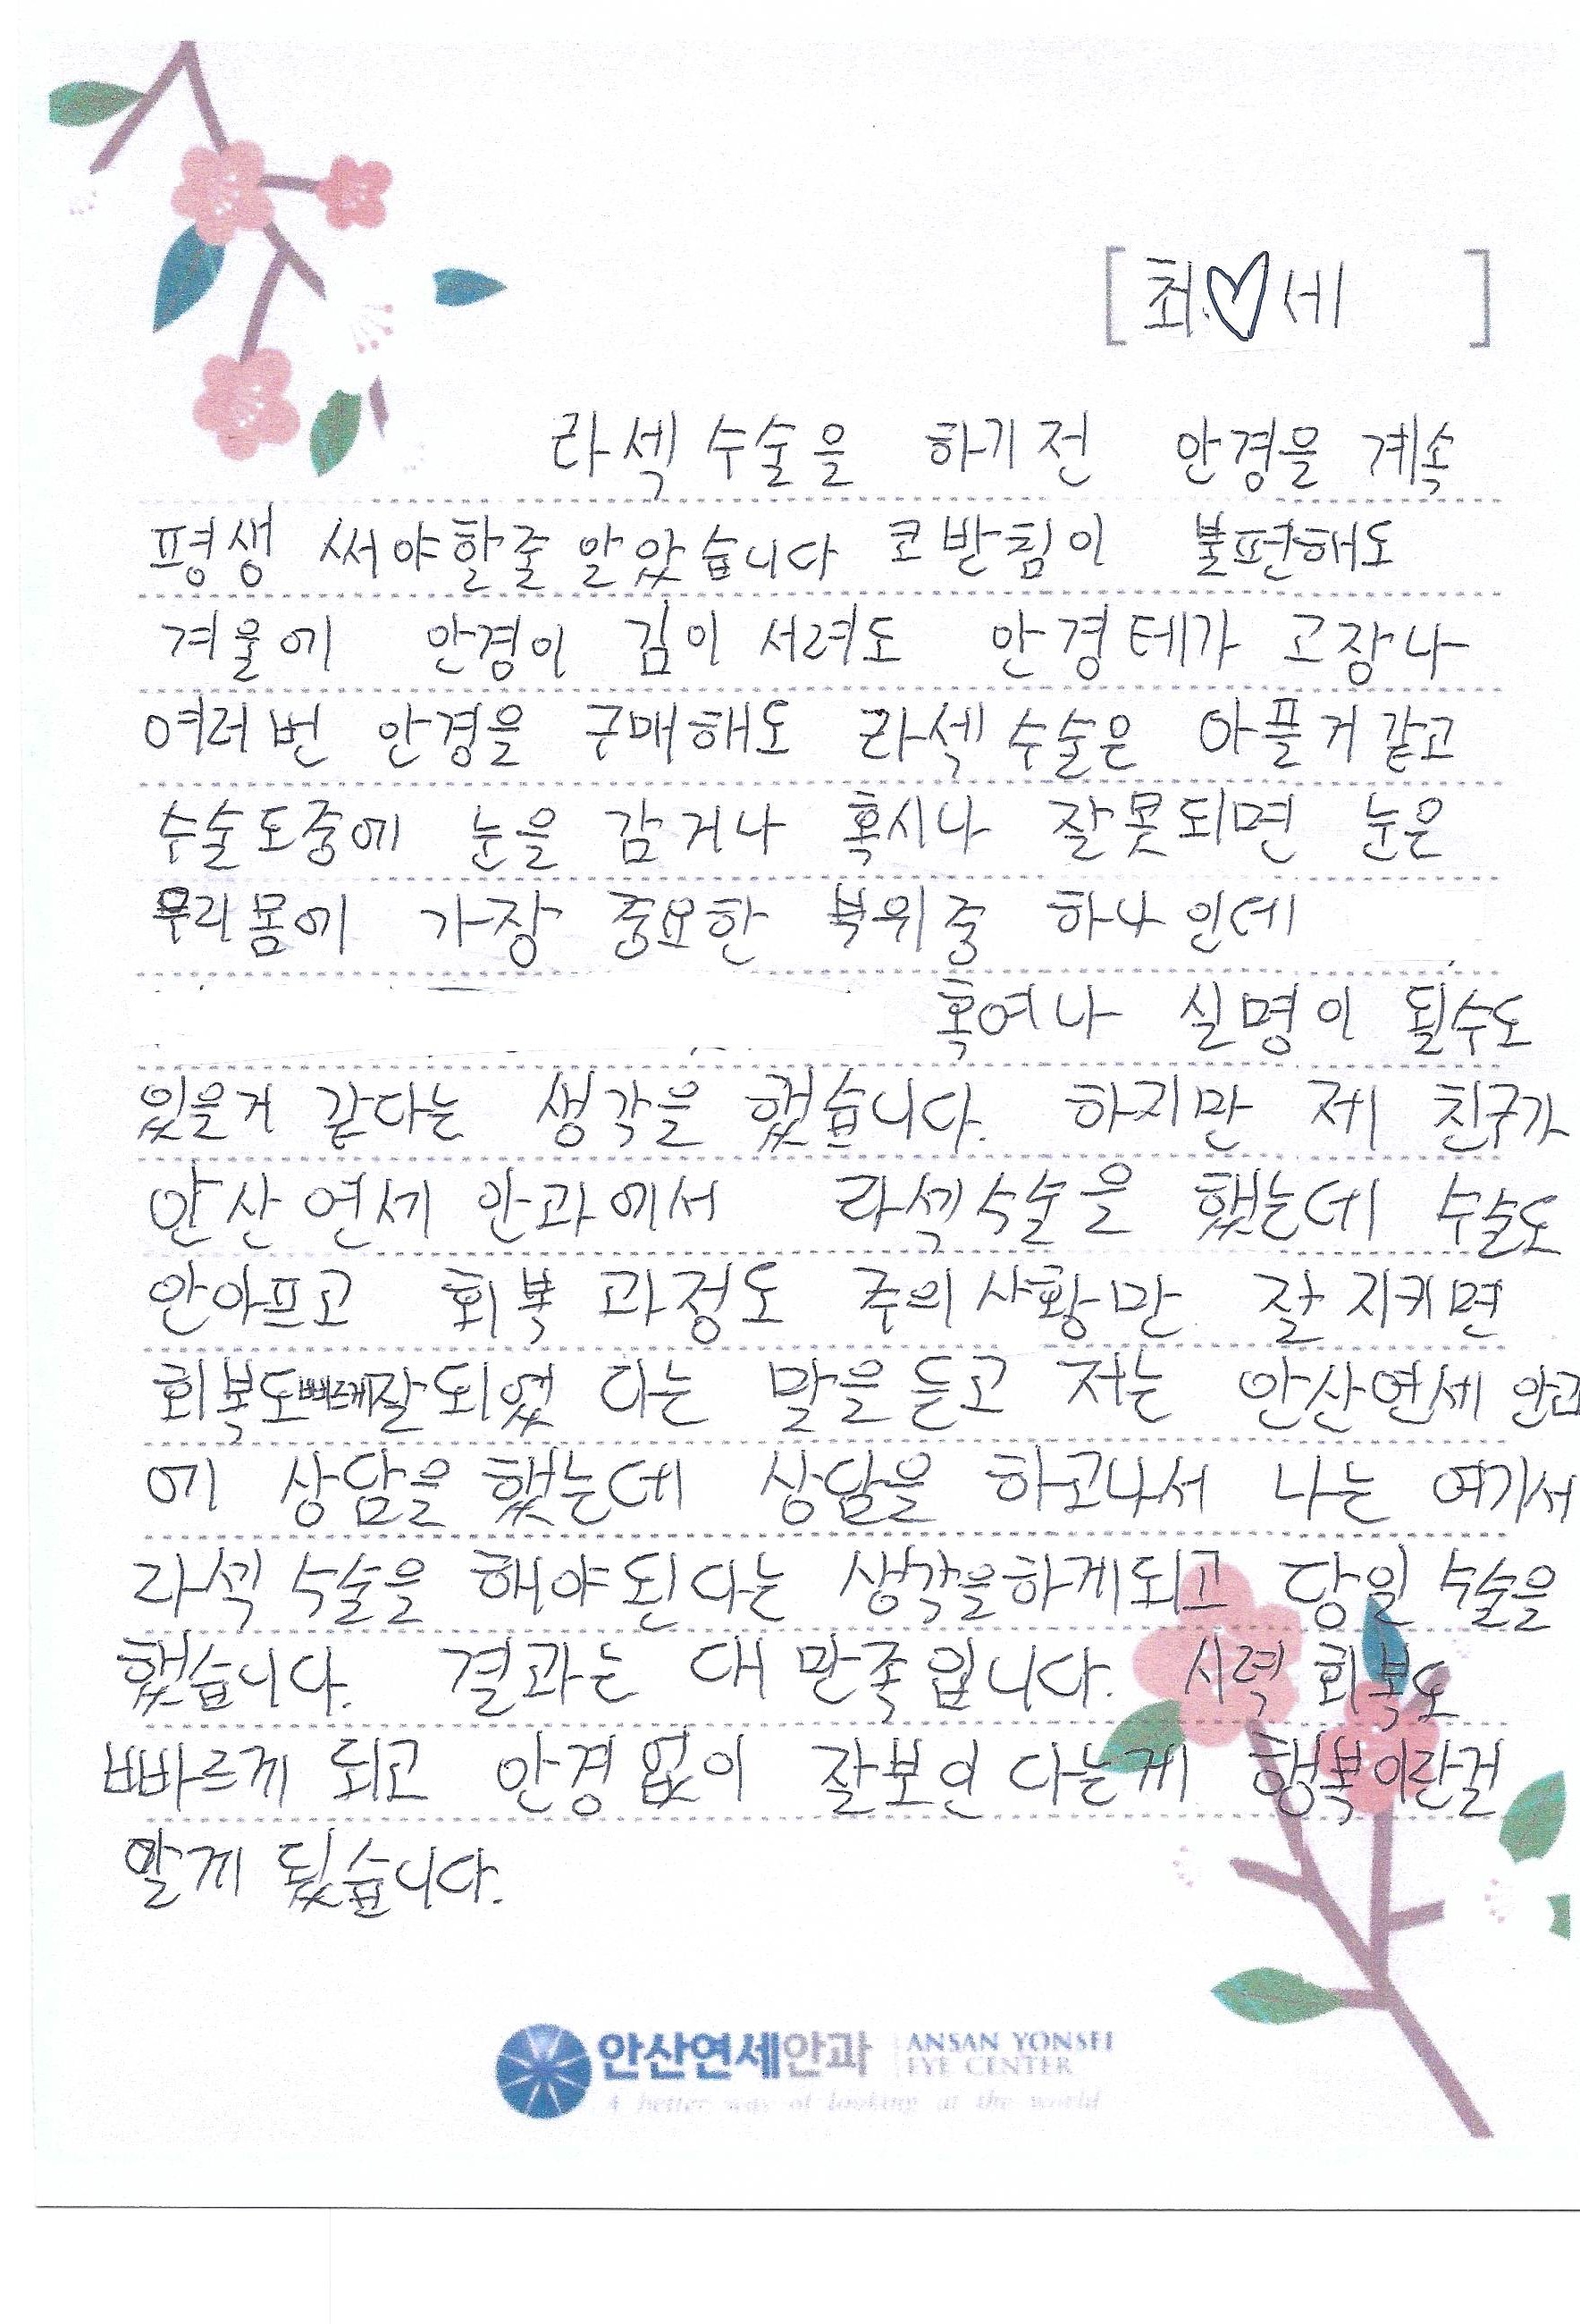 [최♡세]
라섹 수술을 하기전 안경을 계속
평생 써야할줄 알았습니다 코받침이 불편해도
겨울에 안경이 김이 서려도 안경테가 고장나
여러번 안경을 구매해도 라섹 수술은 아플거 같고
수술도중에 눈을 감거나 혹시나 잘못되면 눈은
우리몸에 가장 중요한 부위중 하나인데
혹여나 실명이 될수도
있을거 같다는 생각을 했습니다. 하지만 제 친구가
안산연세 안과에서 라섹수술을 했는데 수술도
안아프고 회복 과정도 주의사황만 잘 지키면
회복도빠르게잘되었 다는 말을듣고 저는 안산연세 안과
에 상담을 했는데 상담을 하고나서 나는 여기서
라섹 수술을 해야된다는 생각을하게되고 당일 수술을
했습니다. 결과는 대 만족입니다. 시력 회복도
빠르게 되고 안경없이 잘보인다는게 행복이란걸
알게 됬습니다.
안산연세안과 ANSAN YONSEI
EYE CENTER
A better way of looking at the world